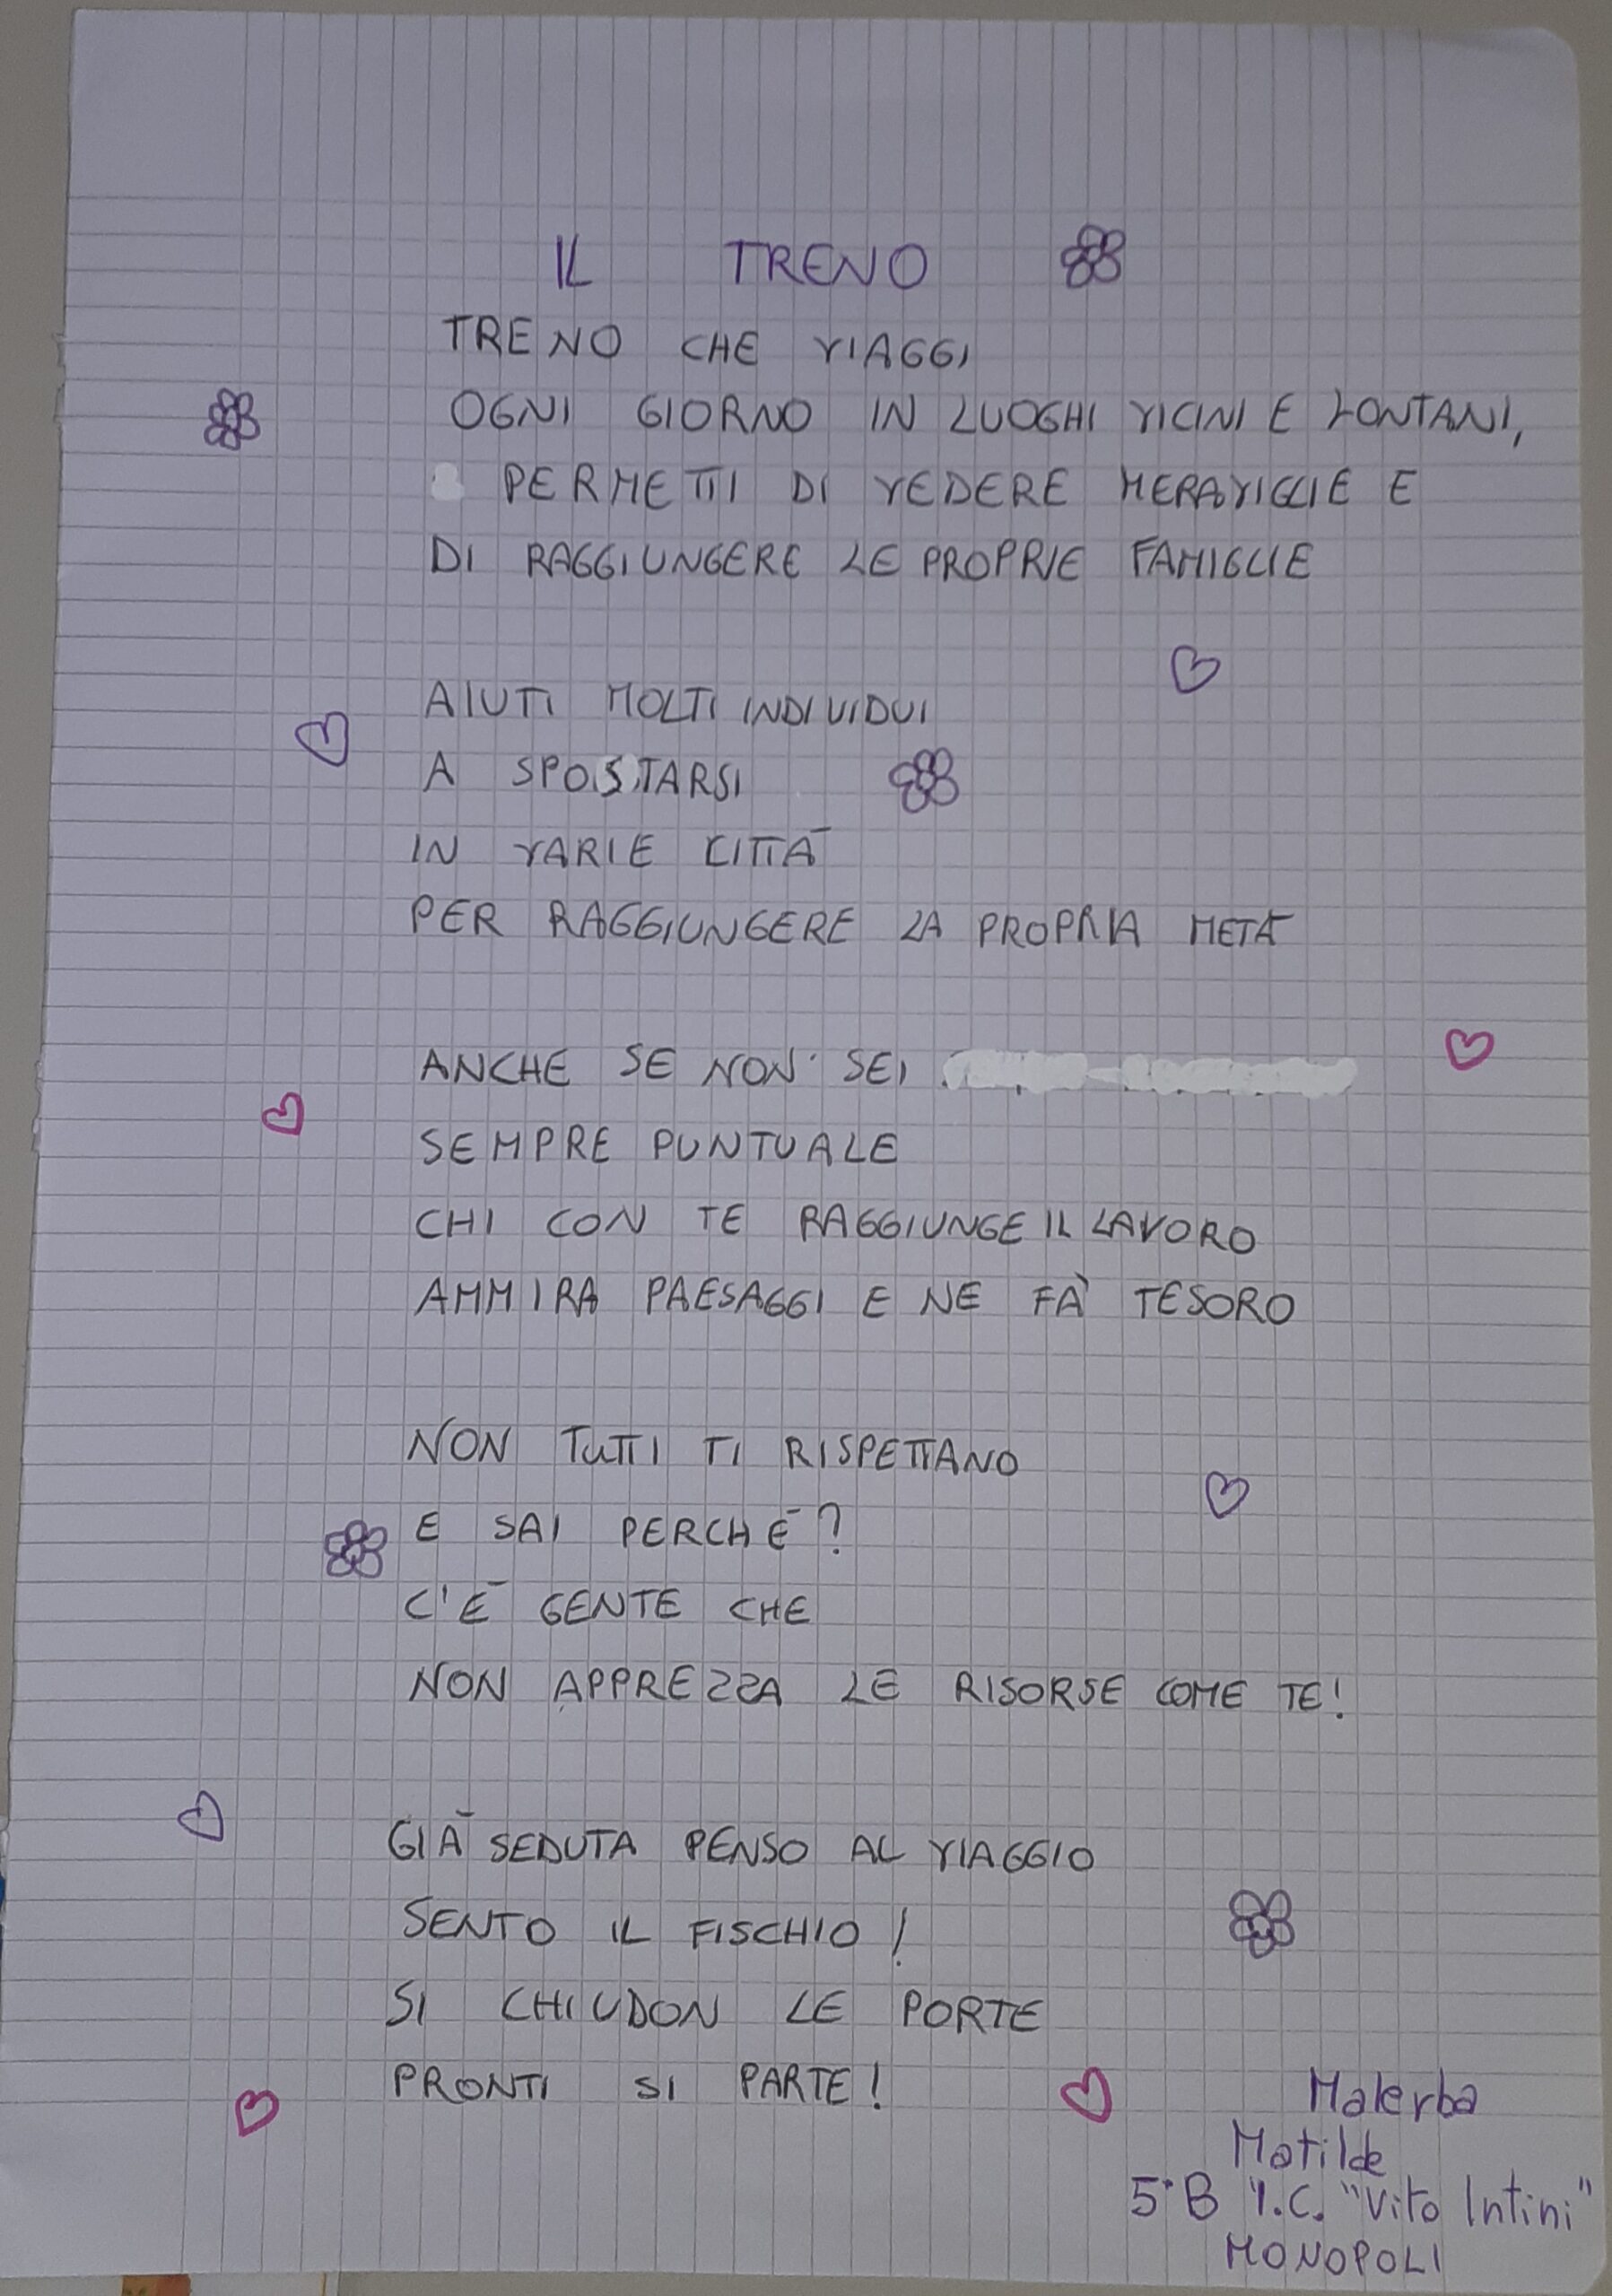 IL TRENO
TRENO CHE VIAGGI
OGNI GIORNO IN LUOGHI VICINI E LONTANI,
PERMETTI DI VEDERE MERAVIGLIE E
DI RAGGIUNGERE LE PROPRIE FAMIGLIE
AIUTI MOLTI INDIVIDUI
A SPOSTARSI
IN VARIE CITTÀ
PER RAGGIUNGERE LA PROPRIA METÀ
ANCHE SE NON SEI
SEMPRE PUNTUALE
CHI CON TE RAGGIUNGE IL LAVORO
AMMIRA PAESAGGI E NE FÀ TESORO
NON TUTTI TI RISPETTANO
E SAI PERCHÉ?
C'È GENTE CHE
NON APPREZZA LE RISORSE COME TE!
GIÀ SEDUTA PENSO AL VIAGGIO
SENTO IL FISCHIO!
SI CHIUDON LE PORTE
PRONTI SI PARTE!
Malerba
Matilde
5°B I.C. "Vito Intini"
MONOPOLI